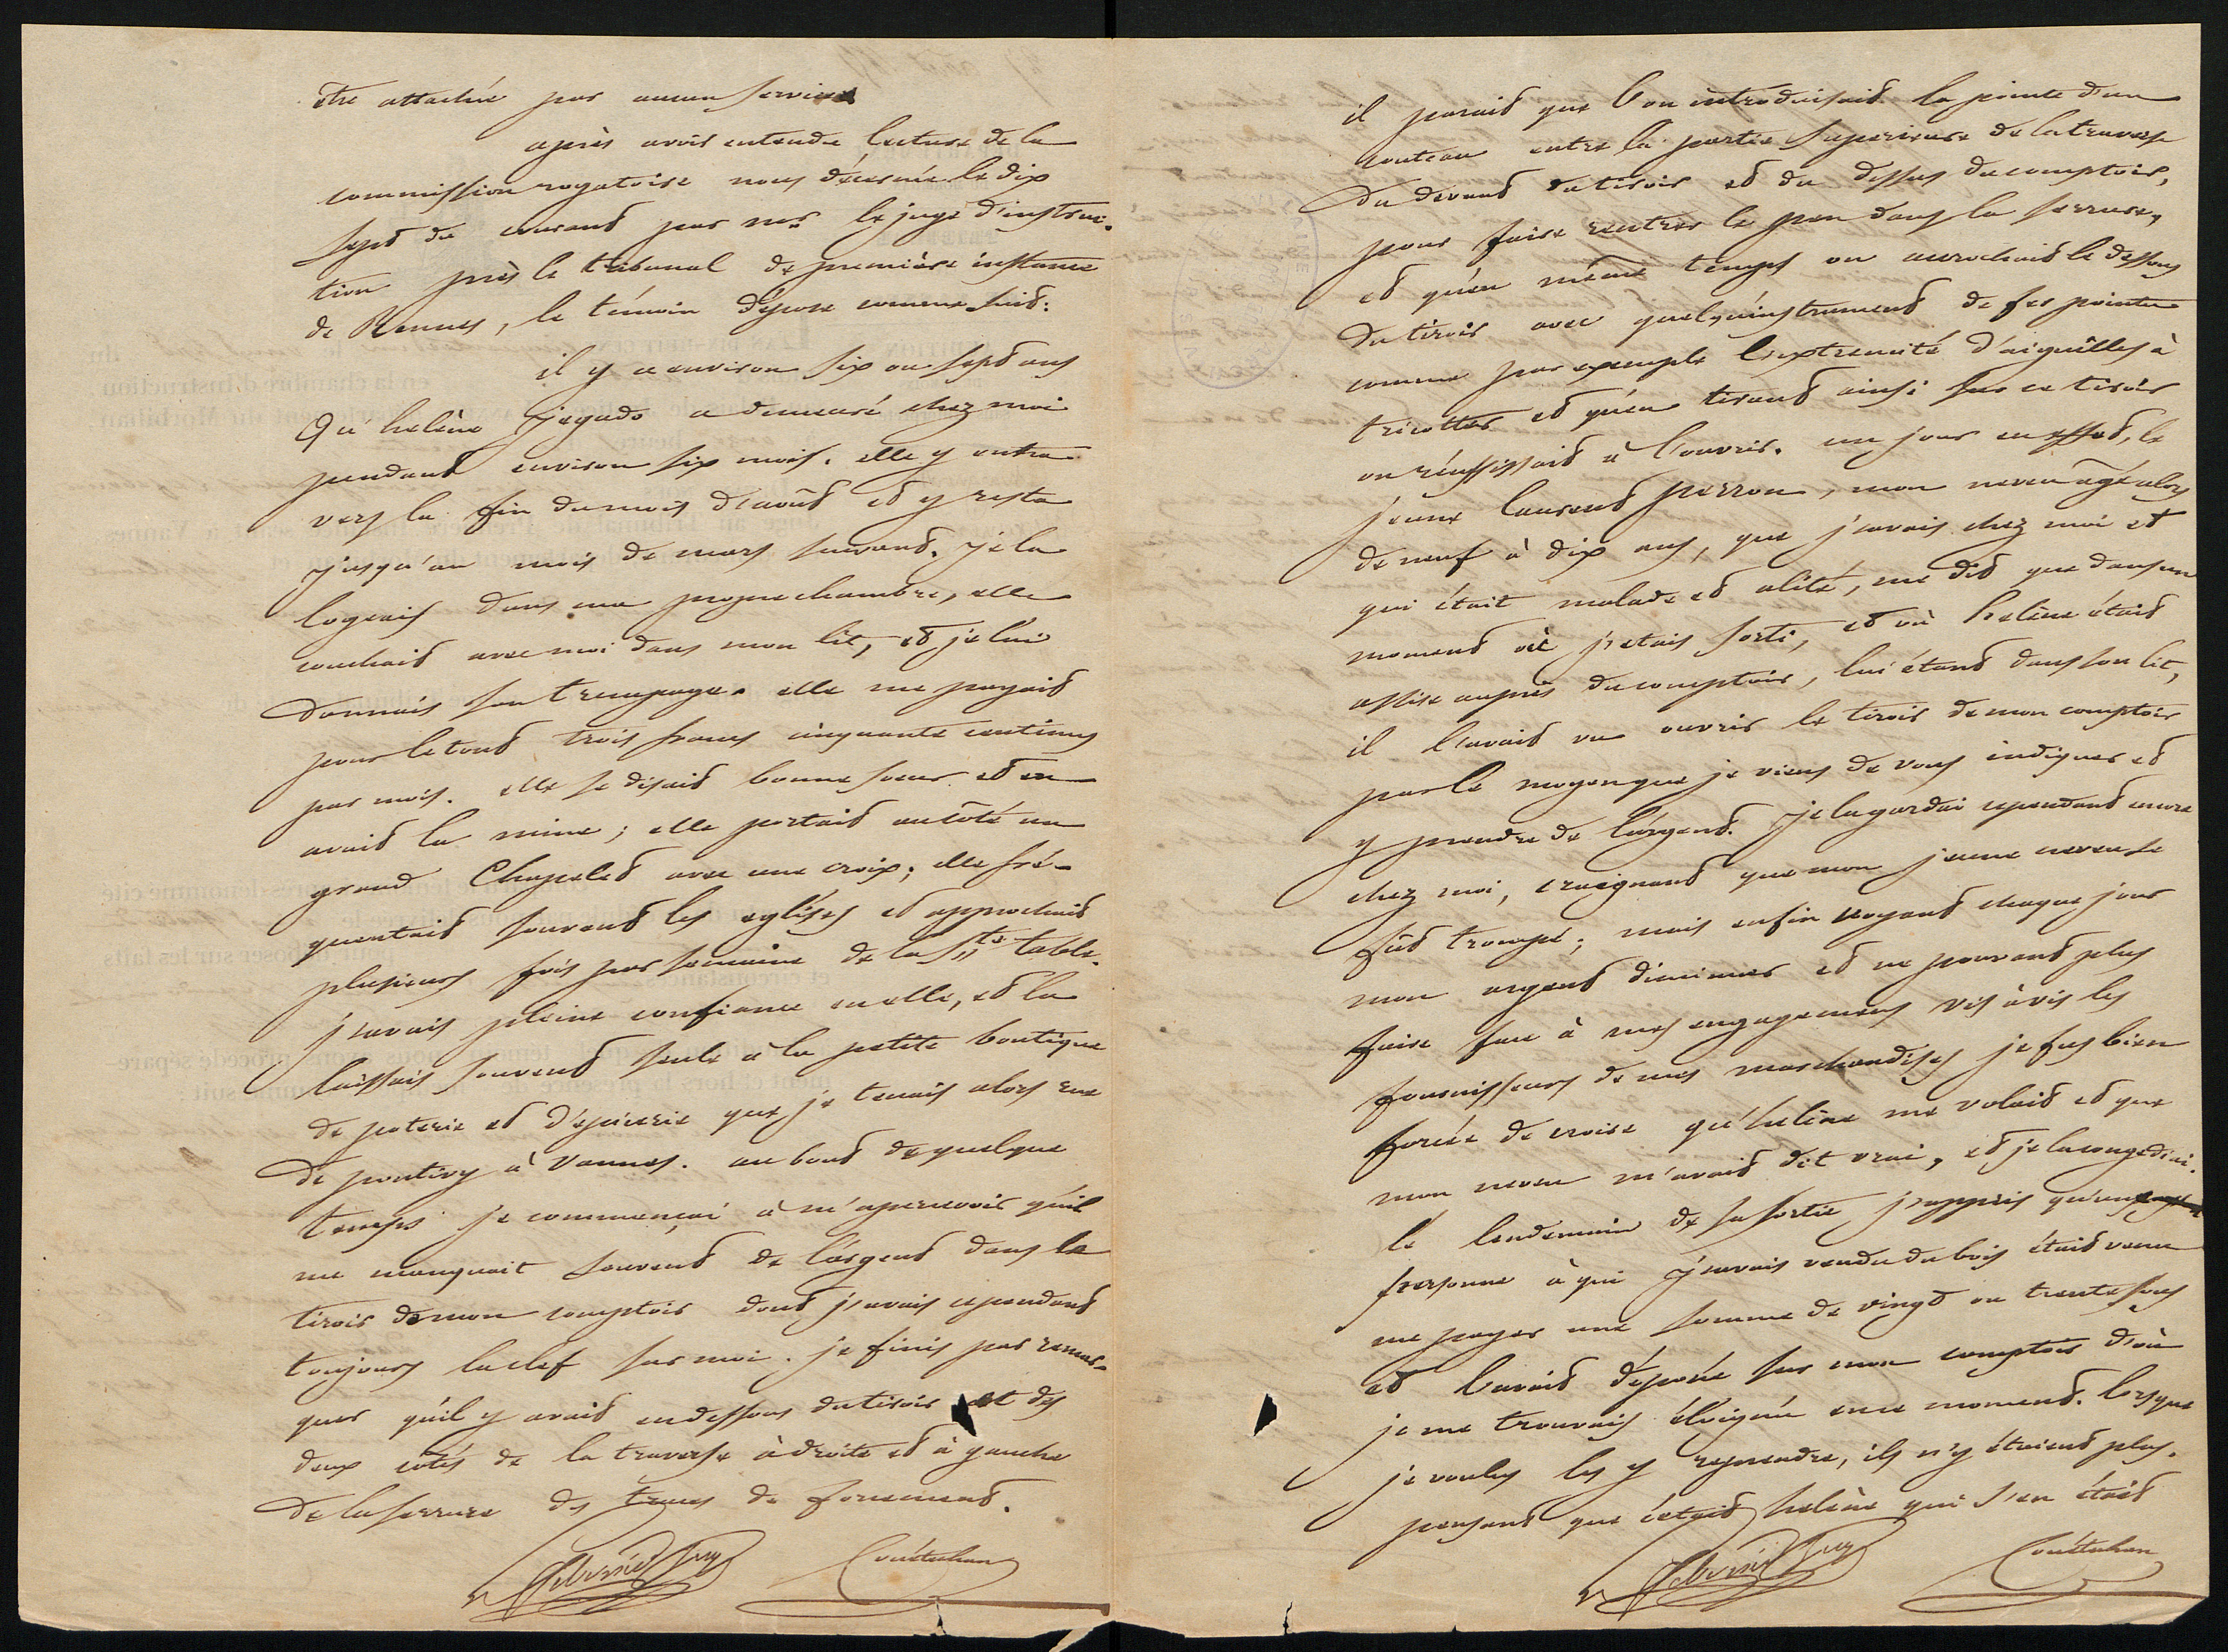 être attachée par aucun service
après avoir entendu lecture de la
commission rogatoire nous décernée le dix
sept du courant par mr le juge d'instruc-
tion près le tribunal de première instance
de Rennes, le témoin dépose comme suit:
il y a environ six ou sept ans
Qu'helène Jegado a demeuré chez moi
pendant environ six mois. elle y entra
vers la fin du mois d'août et y resta
jusqu'au mois de mars suivant. je la
logeais dans ma propre chambre, elle
couchait avec moi dans mon lit, et je lui
donnais son trempage. elle me payait
pour le tout trois francs cinquante centimes
par mois. elle se disait bonne soeur et en
avait la mine; elle portait au côté un
grand Chapelet avec une croix; elle fré-
quentait souvent les églises et approchait
plusieurs fois par semaine de la Ste table.
j'avais pleine confiance en elle, et la
laissais souvent seule à la petite boutique
de poterie et d'épicerie que je tenais alors rue
de pontivy à Vannes. au bout de quelque
temps je commençai à m'apercevoir qu'il
me manquait souvent de l'argent dans le
tiroir de mon comptoir dont j'avais cependant
toujours la clef sur moi. je finis par remar-
quer qu'il y avait en dessous du tiroir et des
deux côtés de la traverse à droite et à gauche
de la serrure des traces de forcement.
Coustuhan
il parait que l'on introduisait la pointe d'un
couteau entre la partie supérieure de la traverse
du devant du tiroir et du dessus du comptoir,
pour faire rentrer le pen dans la serrure,
et qu'en même temps on accrochait le dessous
du tiroir avec quelqu'instrument de fer pointu
comme par exemple l'extremité d'aiguilles à
tricotter et qu'en tirant ainsi sur ce tiroir
on réussissait à l'ouvrir. un jour en effet, le
jeune laurent perron, mon neveu âgé alors
de neuf à dix ans, que j'avais chez moi et
qui était malade et alité, me dit que dans un
moment où j'etais sorti, et où helène était
assise auprès du comptoir, lui étant dans son lit,
il l'avait vu ouvrir le tiroir de mon comptoir
par le moyen que je viens de vous indiquer et
y prendre de l'argent. je la gardai cependant encore
chez moi, craignant que mon jeune neveu se
fut trompé; mais enfin voyant chaque jour
mon argent diminuer et ne pouvant plus
faire face à mes engagemens vis à vis les
fournisseurs de mes marchandises je fus bien
forcée de croire qu'helène me volait et que
mon neveu m'avait dit vrai, et je la congediai.
le lendemain de sa sortie j'appris qu'une
personne à qui j'avais vendu du bois était venu
me payer une somme de vingt ou trente sous
et l'avait déposée sur mon comptoir d'où
je me trouvais éloignée en ce moment. lorsque
je voulus les y reprendre, ils n'y étaient plus.
pensant que c'etait helène qui s'en était
Coustuhan